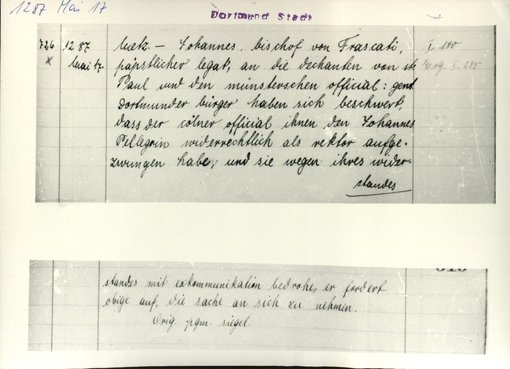 1287 Mai 17
Dortmund Stadt
726 1287 Metz. – Johannes, bischof von Frascati, I 180
x Mai 17. päpstlicher legat, an die dechanten von st.
Paul und den münsterschen official: gen.
Dortmunder bürger haben sich beschwert,
dass der cölner official ihnen den Johannes
Pellegrin widerrechtlich als rektor aufge-
zwungen habe, und sie wegen ihres wider-
standes
standes mit exkommunikation bedrohe, er fordert
obige auf, die sache an sich zu nehmen.
Orig. pgm. siegel.